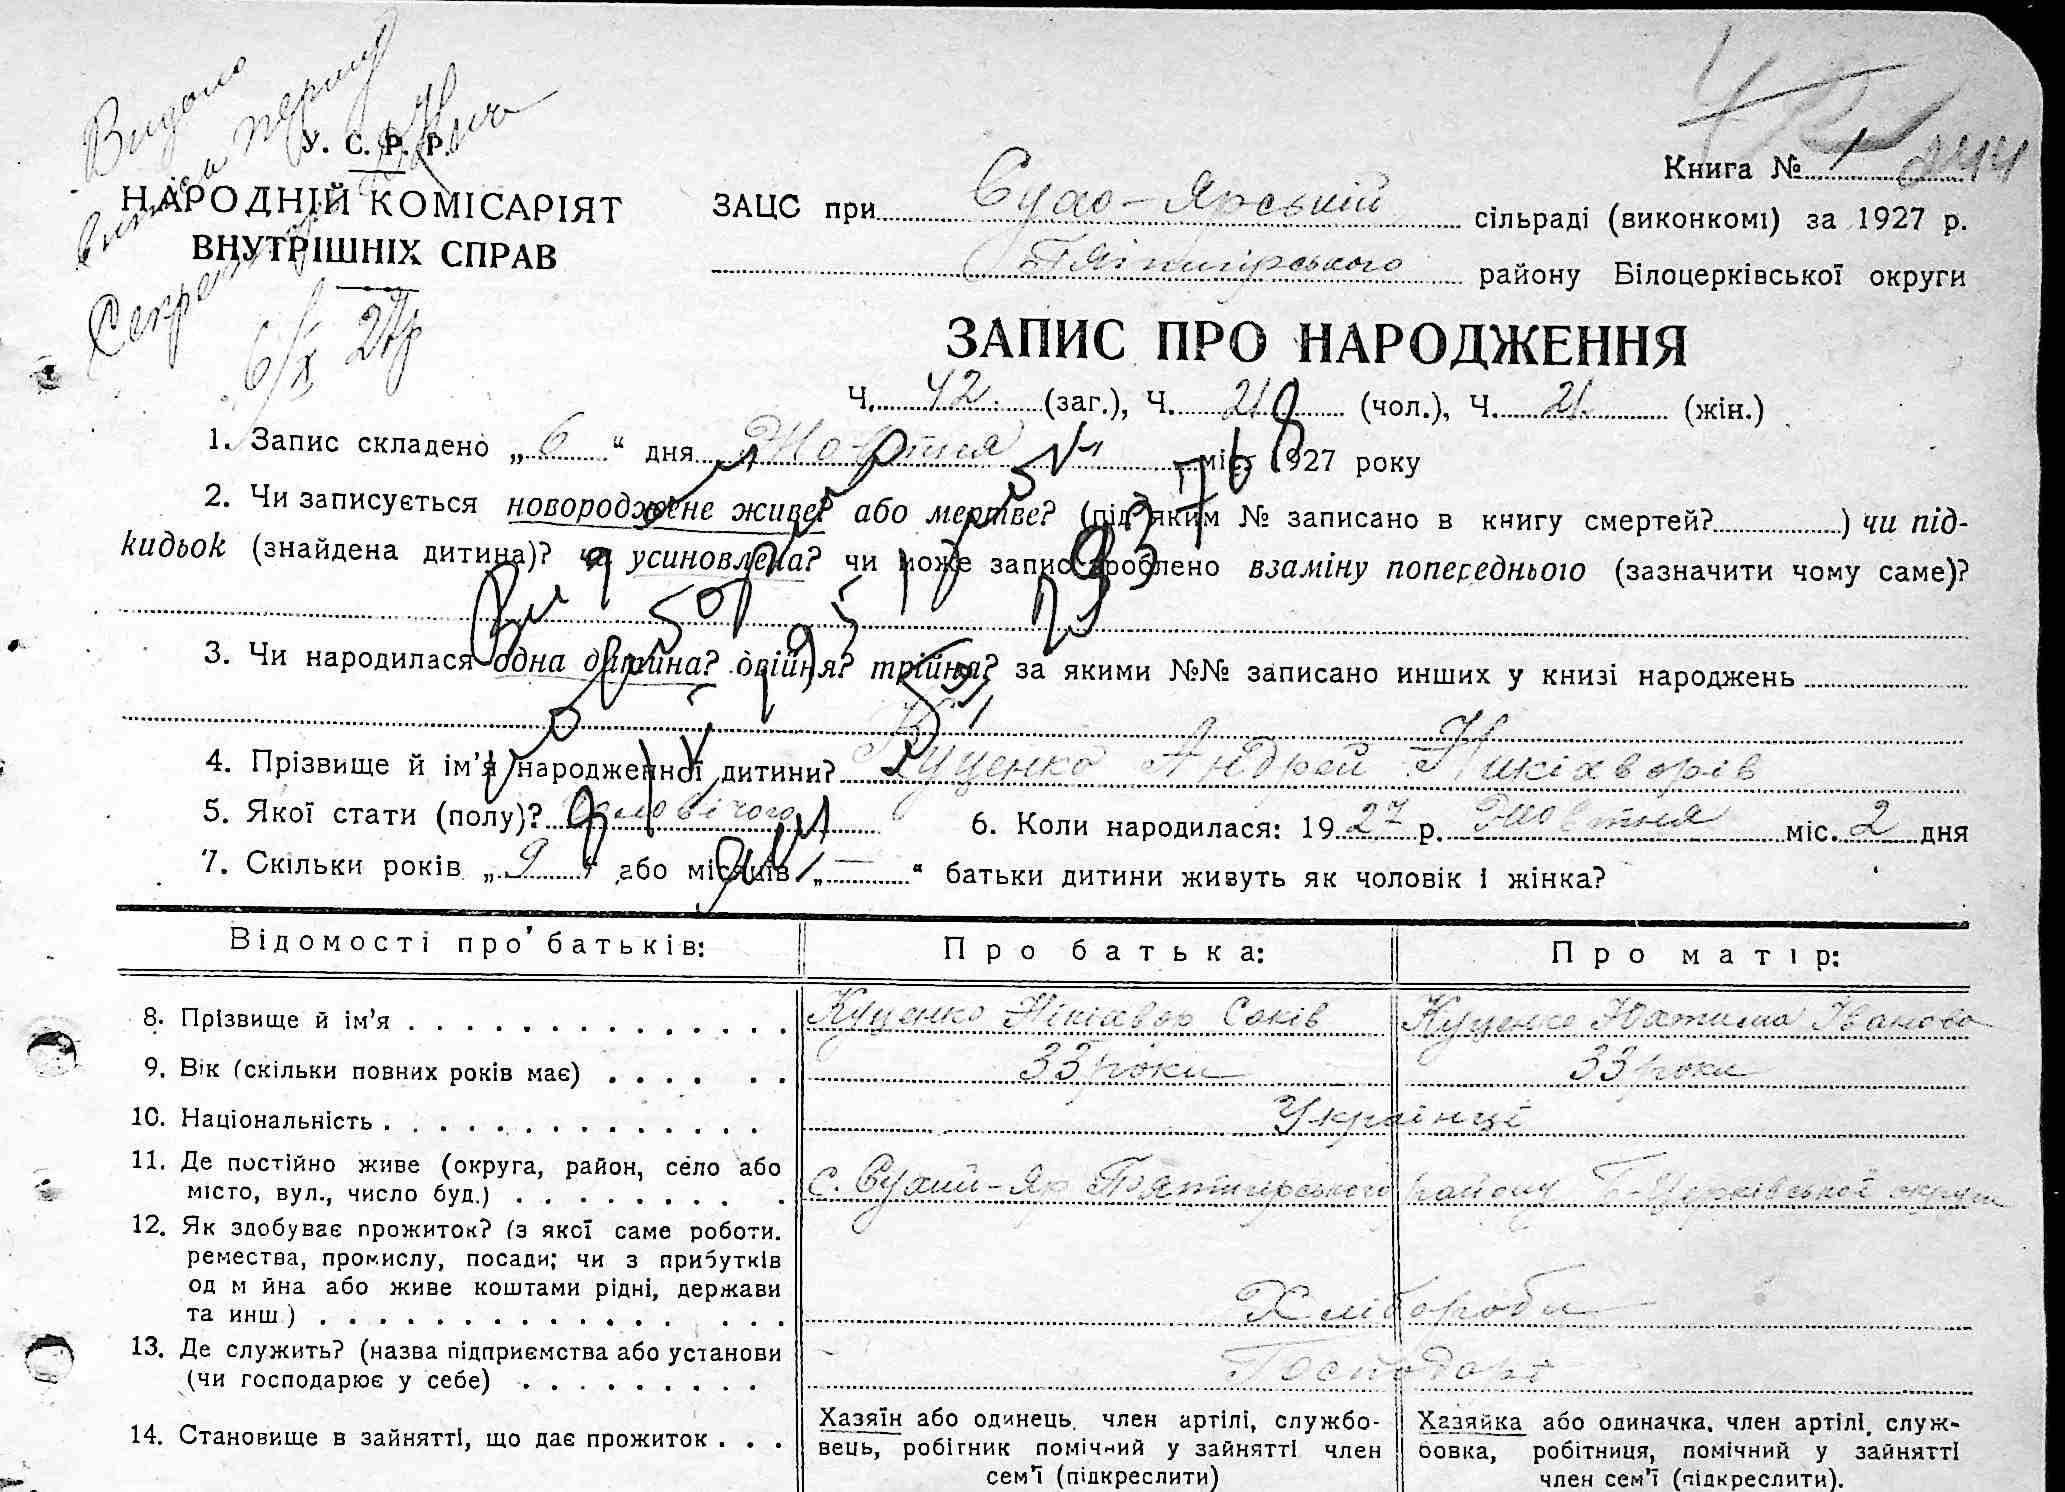 Видано
витяг
Секретар
6/X 27р
У. С. Р. Р.
НАРОДНІЙ КОМІСАРІЯТ
ВНУТРІШНІХ СПРАВ
Книга № 1 244
ЗАЦС при Сухо-Ярській сільраді (виконкомі) за 1927 р.
Пятигірського району Білоцерківської округи
ЗАПИС ПРО НАРОДЖЕННЯ
Ч. 42 (заг.), Ч. 21 (чол.), Ч. 21 (жін.)
1. Запис складено „ 6 “ дня Жовтня міс. 1927 року
2. Чи записується новороджене живе? або мертве? (під яким № записано в книгу смертей? ) чи під-
кидьок (знайдена дитина)? чи усиновлена? чи може запис зроблено взаміну попереднього (зазначити чому саме)?
3. Чи народилася одна дитина? двійня? трійня? за якими №№ записано инших у книзі народжень
4. Прізвище й ім'я народженної дитини? Куценко Андрей
5. Якої стати (полу)? Чоловічого 6. Коли народилася: 1927 р. Жовтня міс. 2 дня
7. Скільки років „ 9 “ або місяців „ — “ батьки дитини живуть як чоловік і жінка?
Відомості про батьків: Про батька: Про матір:
8. Прізвище й ім'я . . . . Куценко Куценко
9. Вік (скільки повних років має) . . . . 33 роки 33 роки
10. Національність . . . . Українці
11. Де постійно живе (округа, район, село або
місто, вул., число буд.) . . . . с. Сухий-Яр Пятигірського району Б-Церківської округи
12. Як здобуває прожиток? (з якої саме роботи.
ремества, промислу, посади; чи з прибутків
од м йна або живе коштами рідні, держави
та инш.) . . . . Хлібороби
13. Де служить? (назва підприємства або установи
(чи господарює у себе) . . . .
14. Становище в зайнятті, що дає прожиток . . .
Хазяїн або одинець, член артілі, службо-
вець, робітник помічний у зайнятті член
сем'ї (підкреслити)
Хазяйка або одиначка, член артілі, служ-
бовка, робітниця, помічний у зайнятті
член сем'ї (підкреслити).